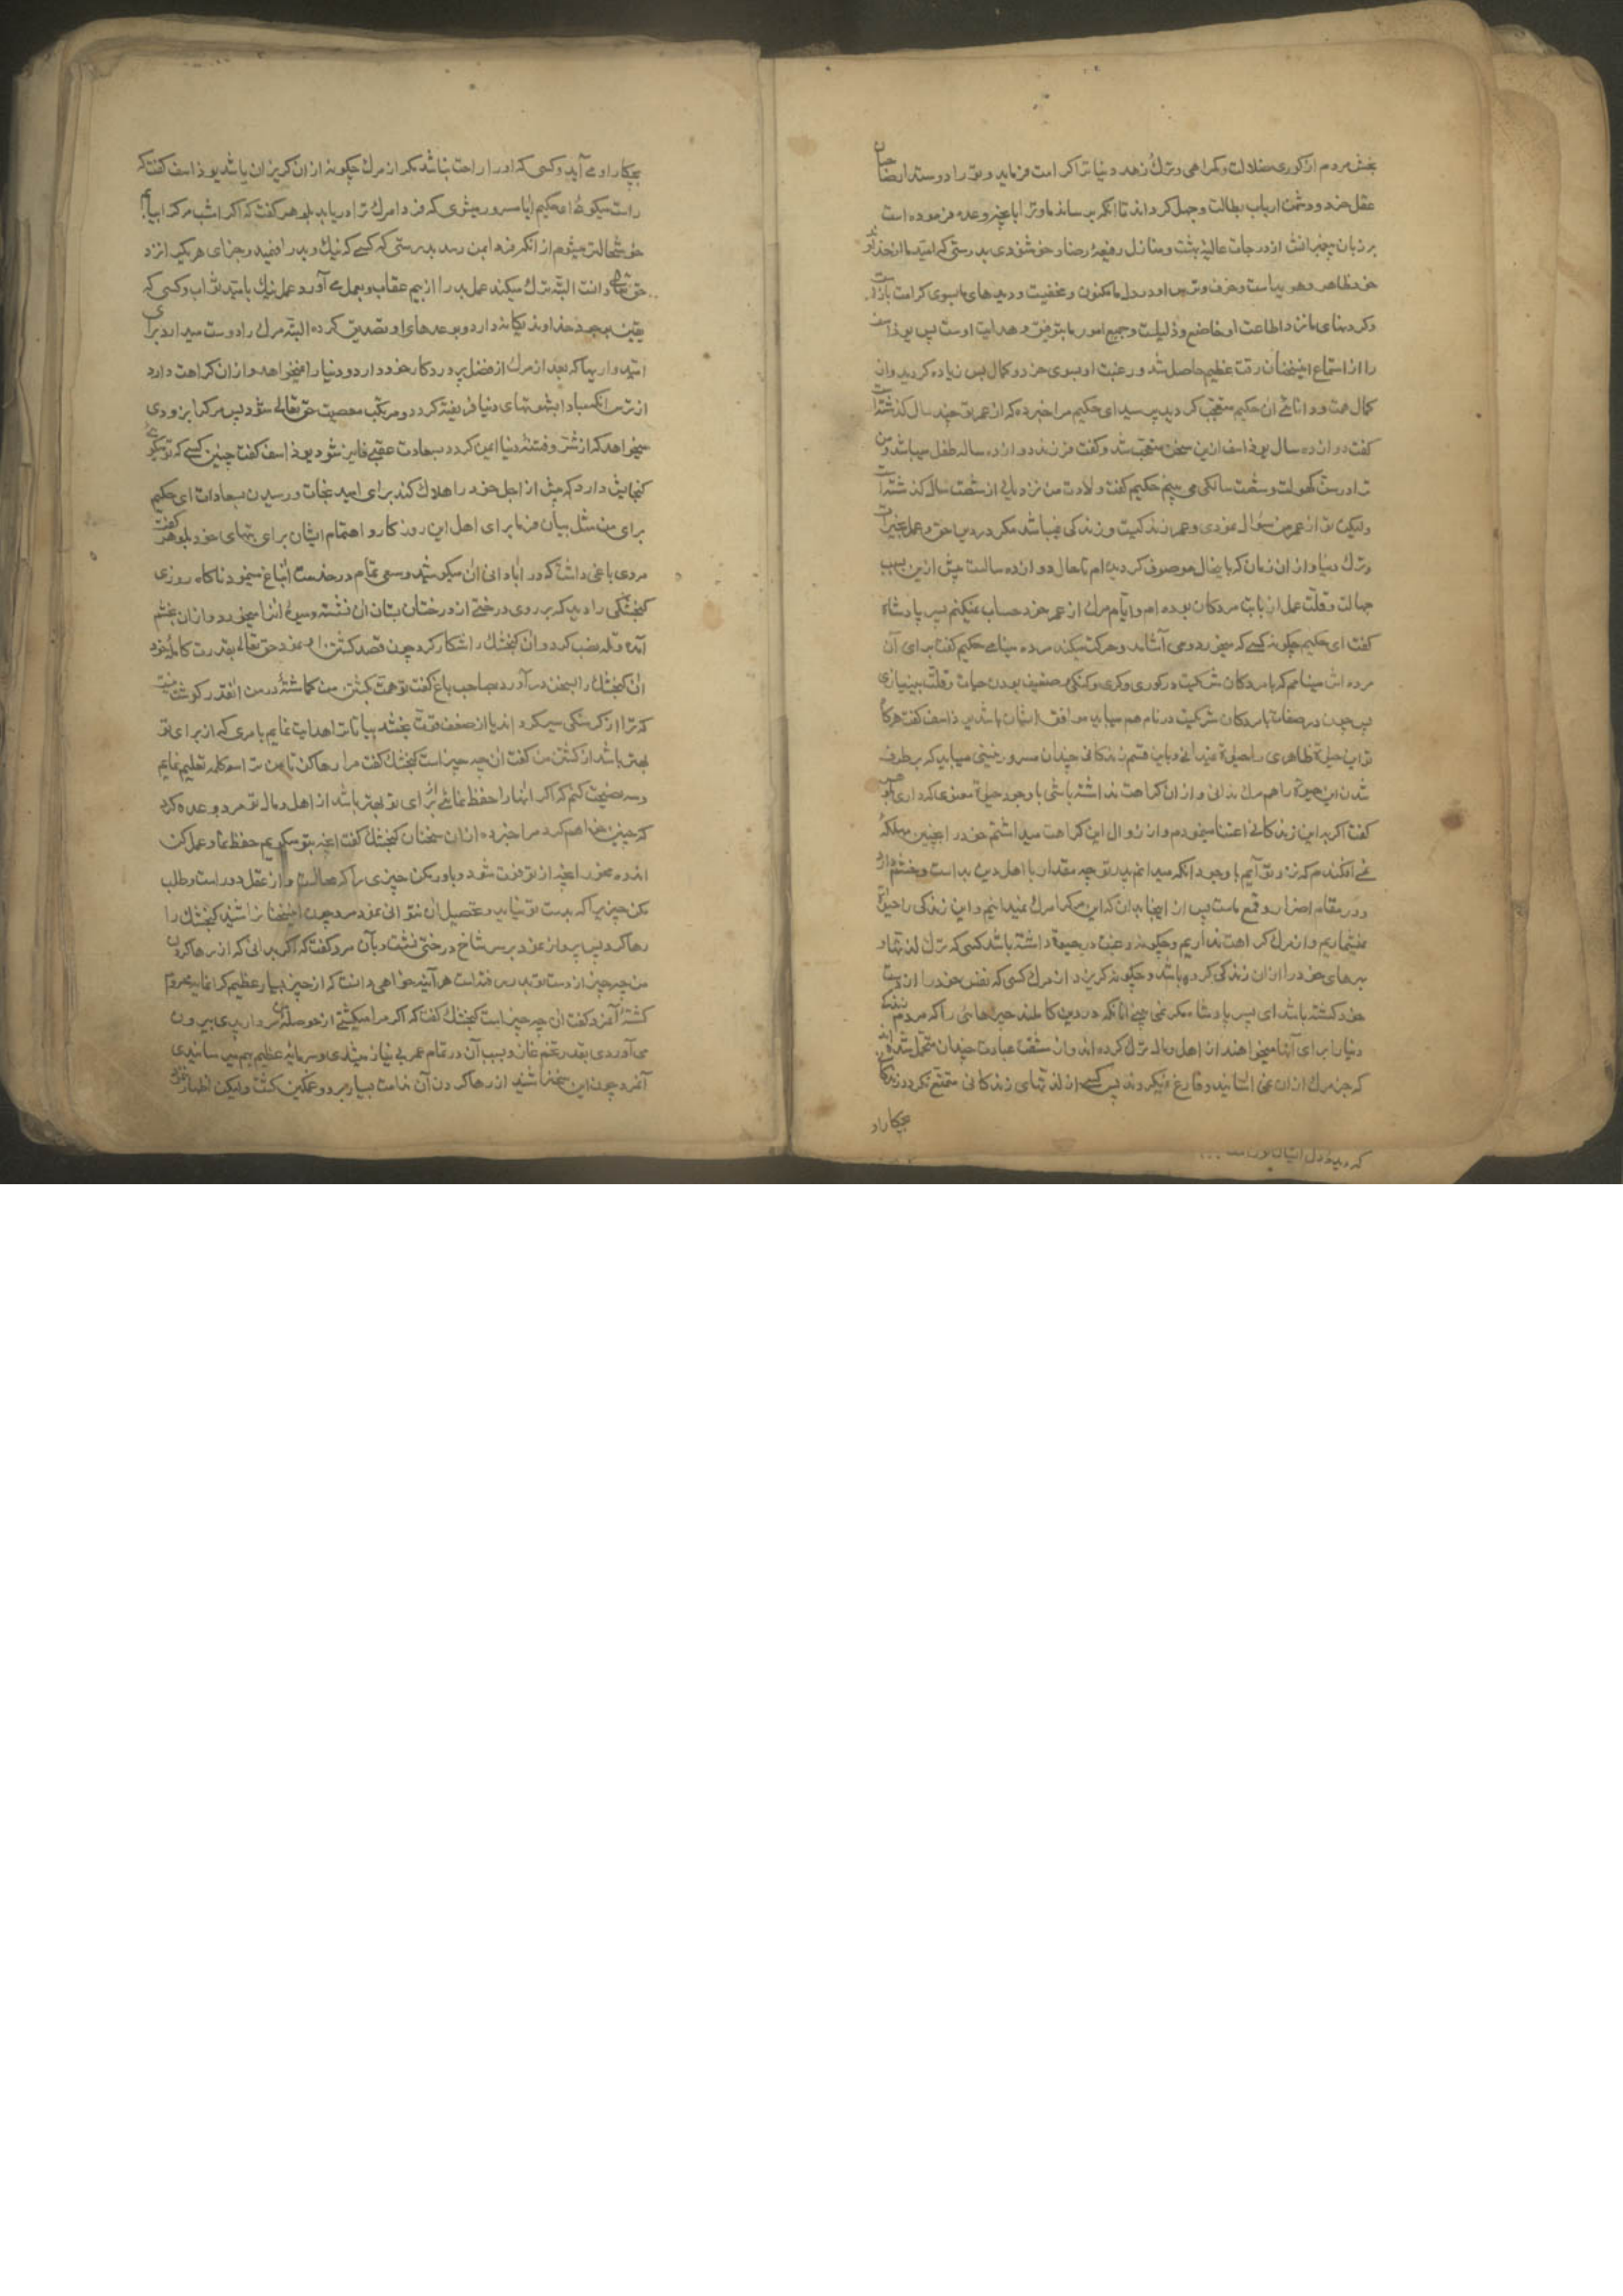 بخش مردم از کوری ضلالت و کمراهی و ترک زهد دنیا ترا کرامت فرماید و تو را دوستدار صاحبان
عقل و خرد و دشمن ارباب بطالت و جهل کرداند تا انکه برساند ما و ترا بانچه وعده فرموده است
بر زبان پیغمبرانش از درجات عالیهٔ بهشت و منازل رفیعهٔ رضا و خوشنودی بدرستی که امید ما از خدا بر
خود ظاهر و هویداست و خوف و ترس او در دل ما مکنون و مخفیست و دیدهای ما بسوی کرامت او باز است
و کردنهای ما نزد اطاعت او خاضع و ذلیلست و جمیع امور ما بتوفیق و هدایت اوست پس یوذاسف
را از استماع این سخنان رقت عظیم حاصل شد و رغبت او بسوی خیر و کمال بس زیاده کردید و از
کمال همت و دانائی ان حکیم متعجب کردید پس پرسید ای حکیم مرا خبر ده که از عمر تو چند سال کذشته است
کفت دوازده سال یوذاسف ازین سخن متعجب شد و کفت فرزند دوازده ساله طفل میباشد و من
ترا در سن کهولت و شصت سالکی می بینم حکیم کفت ولادت من نزدیک از شصت سال کذشته است
ولیکن تو از عمر من سؤال نمودی و عمر زندکیست و زندکی نمیباشد مکر در دین حق و عمل بخیرات
و ترک دنیا و از ان زمان که باینحال موصوف کردیده ام تا حال دوازده سالست و پیش ازین بسبب
جهالت و قلت عمل از بابت مردکان بوده ام و ایام مرک از عمر خود حساب نمیکنم پسر پادشاه
کفت ای حکیم چکونه کسی که میخورد و می آشامد و حرکت میکند مرده مینامی حکیم کفت برای آن
مرده اش مینامم که با مردکان شریکست در کوری و کری و کنکی و ضعیف بودن حیات و قلت بینیازی
پس چون در صفات با مردکان شریکست در نام هم میباید موافق ایشان باشد یوذاسف کفت هرکاه
تو این حیوة ظاهری را حیوة نمیدانی و باین قسم زندکانی چندان مسرور نیستی میباید که برطرف
شدن این حیوة را هم مرک ندانی و از ان کراهت نداشته باشی با وجود حیوة معنوی که داری بلوهر
کفت اکر باین زندکانی اعتنا مینمودم و از زوال این کراهت میداشتم خود را بچنین مهلکه
نمی افکندم که نزد تو آیم با وجود انکه میدانم پدر تو چه مقدار با اهل دین بد است و بخشم
و در مقام اضرار و قمع ماست پس از اینجا بدان که این مرک را مرک نمیدانیم و این زندکی را حیوة
نمیشماریم و از مرک کراهت نداریم و چکونه رغبت در حیوة داشته باشد کسی که ترک لذتها و
بهرهای خود را از ان زندکی کرده باشد و چکونه کریزد از مرک کسی که نفس خود را از دست
خود کشته باشد ای پسر پادشاه مکر نمی بینی انانکه در دین کاملند چیزهائی را که مردم زندکی
دنیا را برای آنها میخواهند از اهل و مال ترک کرده اند و از مشقت عبادت چندان متحمل شده اند
که جز مرک از ان نمی اسایند و فارغ نمیکردند پس کسی از لذتهای زندکانی متمتع نکردد زندکی
بچکار او
بچکار او می آید و کسی که او را راحت نباشد مکر از مرک چکونه از ان کریزان باشد یوذاسف کفت که
راست میکوئی ای حکیم ایا مسرور میشوی که فردا مرک ترا دریابد بلوهر کفت که اکر امشب مرک مرا بیابد
خوشحالتر میشوم از انکه فردا بمن رسد بدرستی که کسی که نیک و بد را فهمید و جزای هر یک را نزد
حق تعالی دانست البته ترک میکند عمل بد را از بیم عقاب و بعمل می آورد عمل نیک بامید ثواب و کسی که
یقین بوجود خداوند یکانه دارد و بوعدهای او تصدیق کرده البته مرک را دوست میدارد برای
امیدواریها که بعد از مرک از فضل پروردکار خود دارد و دنیا را نمیخواهد و از ان کراهت دارد
از ترس انکه مبادا بشهوتهای دنیا فریفته کردد و مرتکب معصیت حق تعالی شود پس مرک را بزودی
میخواهد که از شر و فتنهٔ دنیا ایمن کردد و بسعادت عقبی فایز شود یوذاسف کفت چنین کسی که تو میکوئی
کنجایش دارد که پیش از اجل خود را هلاک کند برای امید نجات و رسیدن بسعادات ای حکیم
برای من مثل بیان فرما برای اهل این روزکار و اهتمام ایشان برای بتهای خود بلوهر کفت
مردی باغی داشت که در ابادانی ان میکوشید و سعی تمام در خدمت ان باغ مینمود ناکاه روزی
کنجشکی را دید که بر روی درختی از درختان بستان ان نشسته و میوهٔ انرا میخورد و از ان بخشم
آمده و تله نصب کرد و ان کنجشک را شکار کرد چون قصد کشتن او نمود حق تعالی بقدرت کاملهٔ خود
ان کنجشک را بسخن در آورد بصاحب باغ کفت تو همت بکشتن من کماشتهٔ و در من انقدر کوشت نیست
که ترا از کرسنکی سیر کرداند یا از ضعف قوت بخشد بیا تا ترا هدایت نمایم بامری که از برای تو
بهتر باشد از کشتن من کفت ان چه چیز است کنجشک کفت مرا رها کن تا من ترا سه کلمه تعلیم نمایم
و سه نصیحت کنم که اکر انها را حفظ نمائی برای تو بهتر باشد از اهل و مال تو مرد وعده کرد
که چنین خواهم کرد مرا خبر ده از ان سخنان کنجشک کفت انچه بتو میکویم حفظ نما و عمل کن
اندوه مخور بانچه از تو فوت شود و باور مکن چیزی را که محالست و از عقل دور است و طلب
مکن چیزیرا که بدست تو نیاید و تحصیل ان نتوانی نمود مرد چون این سخنانرا شنید کنجشک را
رها کرد پس پرواز نمود و بر سر شاخ درختی نشست و بآن مرد کفت که اکر بدانی که از رها کردن
من چه چیز از دست تو بدر رفته است هر آینه خواهی دانست که از چیز بسیار عظیم کرانمایه محروم
کشتهٔ آنمرد کفت ان چه چیز است کنجشک کفت که اکر مرا میکشتی از حوصلهٔ من مرواریدی بیرون
می آوردی بقدر تخم غاز و بسبب آن در تمام عمر بی نیاز میشدی و سرمایهٔ عظیم بهم میرسانیدی
آنمرد چون این سخنرا شنید از رها کردن آن ندامت بسیار برد و غمکین کشت ولیکن اظهار نکرد